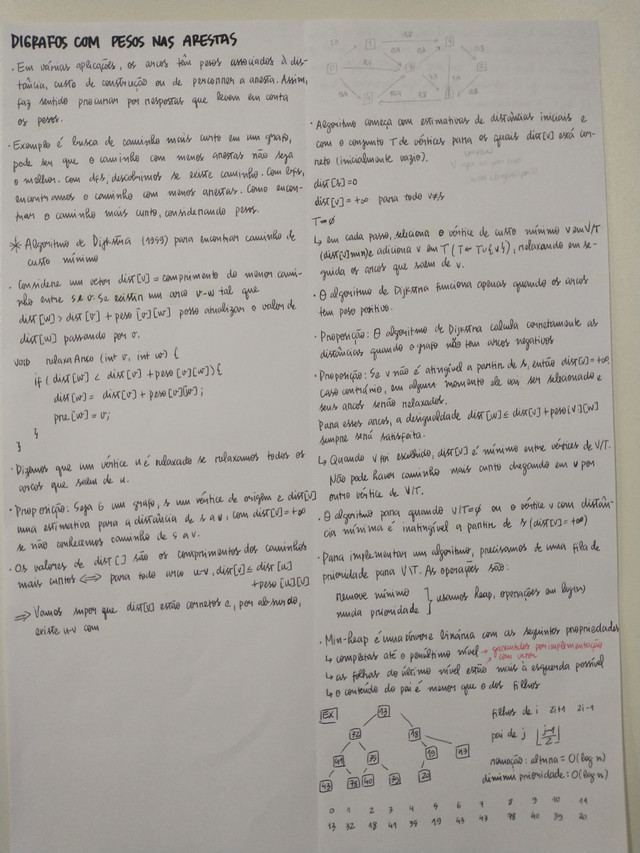 DIGRAFOS COM PESOS NAS ARESTAS
· Em várias aplicações, os arcos têm pesos associados à dis-
tância, custo de construção ou de percorrer a aresta. Assim,
faz sentido procurar por respostas que levem em conta
os pesos.
· Exemplo é busca de caminho mais curto em um grafo,
pode ser que o caminho com menos arestas não seja
o melhor. Com dfs, descobrimos se existe caminho. Com bfs,
encontramos o caminho com menos arestas. Como encon-
trar o caminho mais curto, considerando pesos.
* Algoritmo de Dijkstra (1959) para encontrar caminho de
custo mínimo
· Considere um vetor dist[v] = comprimento do menor cami-
nho entre s e v. Se existir um arco v-w tal que
dist[w] > dist[v] + peso[v][w] posso atualizar o valor de
dist[w] passando por v.
void relaxaArco (int v, int w) {
if (dist[w] < dist[v] + peso[v][w]) {
dist[w] = dist[v] + peso[v][w];
pre[w] = v;
}
}
· Dizemos que um vértice u é relaxado se relaxamos todos os
arcos que saem de u.
· Proposição: Seja G um grafo, s um vértice de origem e dist[v]
uma estimativa para a distância de s a v, com dist[v] = +∞
se não conhecemos caminho de s a v.
· Os valores de dist[] são os comprimentos dos caminhos
mais curtos ⇔ para todo arco u-v, dist[v] ≤ dist[u]
+peso[u][v]
⇒ Vamos supor que dist[v] estão corretos e, por absurdo,
existe u-v com
· Algoritmo começa com estimativas de distâncias iniciais e
com o conjunto T de vértices para os quais dist[v] está cor-
reto (inicialmente vazio).
dist[s]=0
dist[v] = +∞ para todo v≠s
T=∅
↳ em cada passo, seleciona o vértice de custo mínimo v em V/T
(dist[v] min) e adiciona v em T (T ← T∪{v}), relaxando em se-
guida os arcos que saem de v.
· O algoritmo de Dijkstra funciona apenas quando os arcos
tem peso positivo.
· Proposição: O algoritmo de Dijkstra calcula corretamente as
distâncias quando o grafo não tem arcos negativos
· Proposição: Se v não é atingível a partir de s, então dist[v]=+∞.
Caso contrário, em algum momento ele vai ser selecionado e
seus arcos serão relaxados.
Para esses arcos, a desigualdade dist[w] ≤ dist[v] + peso[v][w]
sempre será satisfeita.
↳ Quando v foi escolhido, dist[v] é mínimo entre vértices de V/T.
Não pode haver caminho mais curto chegando em v por
outro vértice de V/T.
· O algoritmo para quando V/T=∅ ou o vértice v com distân-
cia mínima é inatingível a partir de s (dist[v] = +∞)
· Para implementar um algoritmo, precisamos de uma fila de
prioridade para V\T. As operações são:
remove mínimo
muda prioridade } usamos heap, operações em lg(n)
· Min-heap é uma árvore binária com as seguintes propriedades
↳ completas até o penúltimo nível → garantidos por implementação
↳ as folhas do último nível estão mais à esquerda possível → com vetor
↳ o conteúdo do pai é menor que o dos filhos
EX
13
32 18
41 39 19 43
43 78 40 39 20
filhos de i 2i+1 2i-1
pai de j ⌊j-1/2⌋
remoção: altura = O(log n)
diminui prioridade: O(log n)
0 1 2 3 4 5 6 7 8 9 10 11
13 32 18 41 39 19 43 43 78 40 39 20